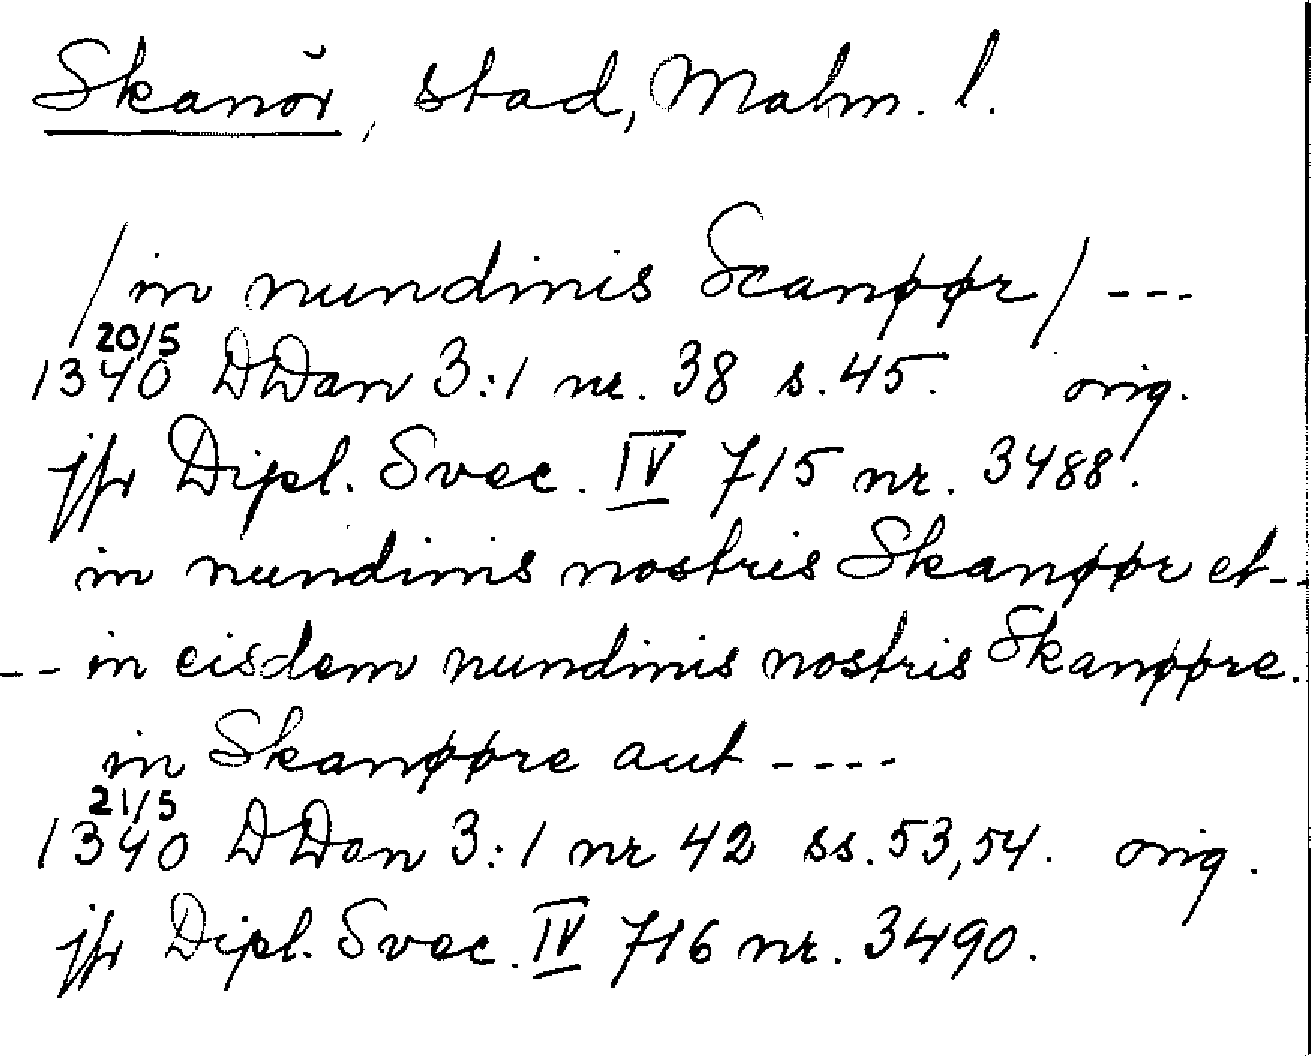 Skanör, stad, Malm. l.
/in nundinis Scanøør/ ---
20/5
1340 DDan 3:1 nr. 38 s. 45. orig.
jfr Dipl. Svec. IV 715 nr. 3488.
in nundinis nostris Skanøør et--
-- in eisdem nundinis nostris Skanøøre.
in Skanøøre aut ----
21/5
1340 DDan 3:1 nr 42 ss. 53,54. orig.
jfr Dipl. Svec. IV 716 nr. 3490.